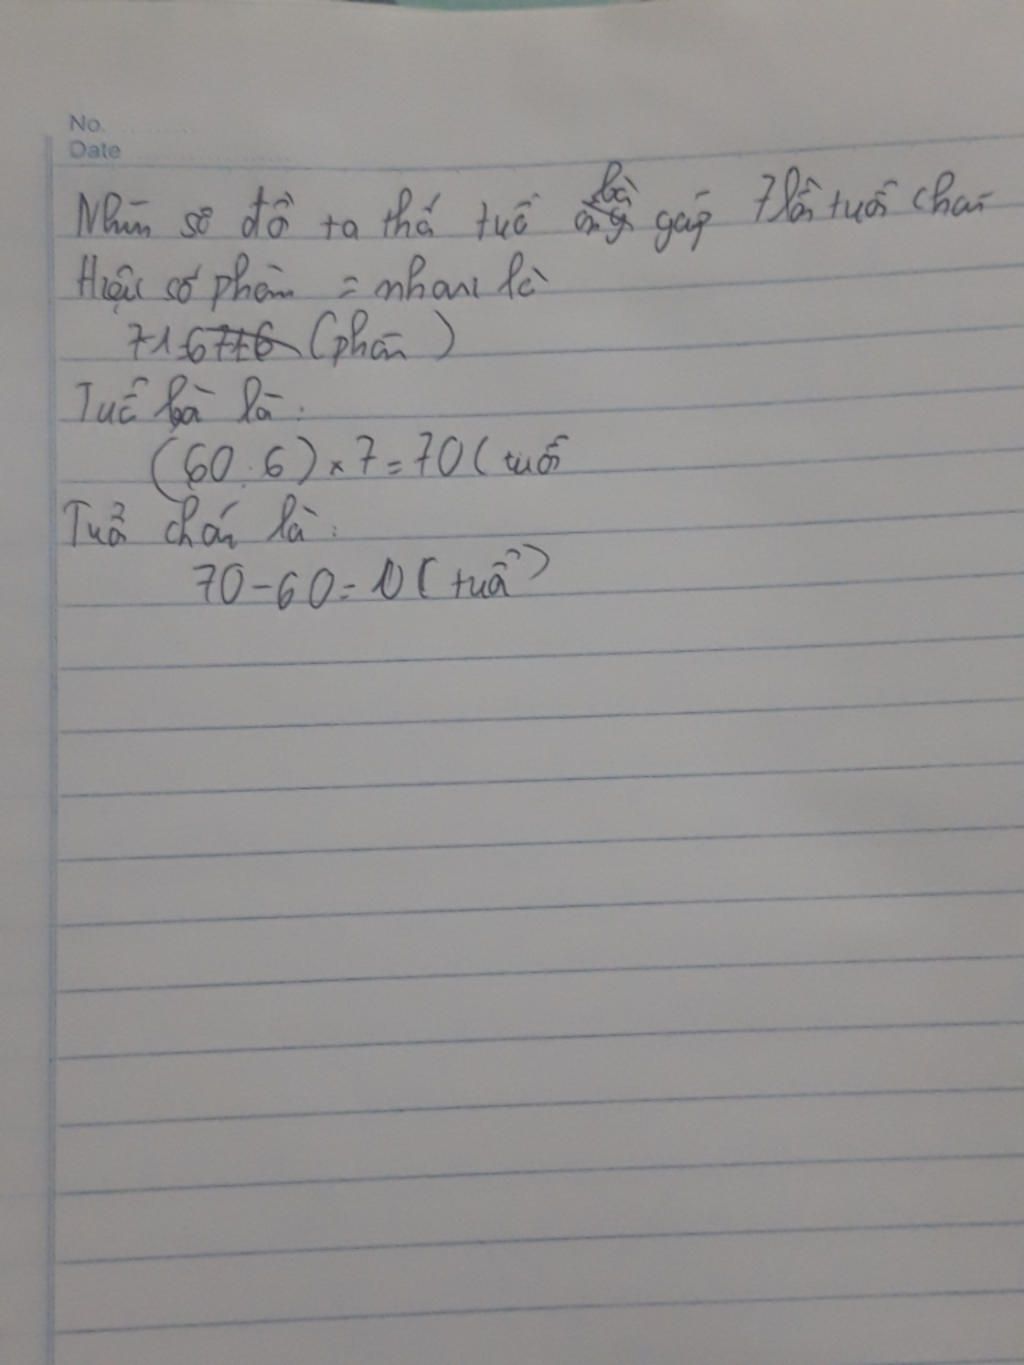 No.
Date
Nhìn sơ đồ ta thấ tuổ bà gấp 7 lần tuổi cháu
Hiệu số phần = nhau là
7-1=6 (phần)
Tuổ bà là:
(60:6)×7=70( tuổi
Tuổ cháu là:
70-60=10( tuổ)